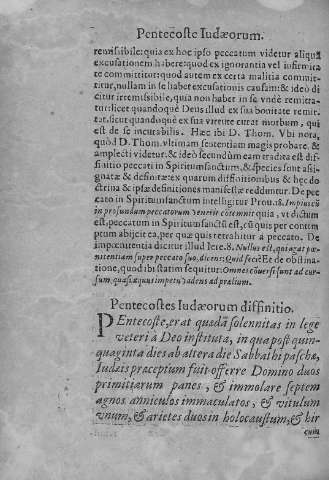 Pentecoste Iudæorum.
remissibile: quia ex hoc ipso peccatum videtur aliquã
excusationem habere: quod ex ignorantia vel infirmita
te committitur: quod autem ex certa malitia commit-
titur, nullam in se habet excusationis causam: & ideò di
citur irremissibile, quia non habet in se vndè remitta-
tur: licet quandoque Deus illud ex sua bonitate remit-
tat, sicut quandoque ex sua virtute curat morbum, qui
est de se incurabilis. Hæc ibi D. Thom. Vbi nota,
quòd D. Thom. vltimam sententiam magis probare, &
amplecti videtur. & ideò secundùm eam tradita est dif-
finitio Peccati in Spiritumsanctum, & species sunt assi-
gnatæ & definitæ: ex quarum diffinitionibus & hęc do
ctrina & ipsæ definitiones manifestæ redduntur. De pec
cato in Spiritumsanctum intelligitur Prou. 18. Impius cũ
in profundum peccatorum venerit contemnit quia, vt dictum
est, peccatum in Spiritumsanctũ est, cũ quis per contem
ptum abijcit ea, per quæ quis retrahitur à peccato. De
impœnitentia dicitur illud Iere. 8. Nullus est, qui agat pœ-
nitentiam super peccato suo, dicens: Quid feci? Et de obstina-
tione, quod ibi statim sequitur: Omnes cõuersi sunt ad cur-
sum, quasi equus impetu vadens ad prælium.
Pentecostes Iudæorum diffinitio.
PEntecoste, erat quedã solennitas in lege
veteri à Deo instituta, in qua post quin-
quaginta dies ab altera die Sabbathi paschæ,
Iudæis præceptum fuit offerre Domino duos
primitiarum panes, & immolare septem
agnos anniculos immaculatos, & vitulum
vnum, & arietes duos in holocaustum, & hir
cum